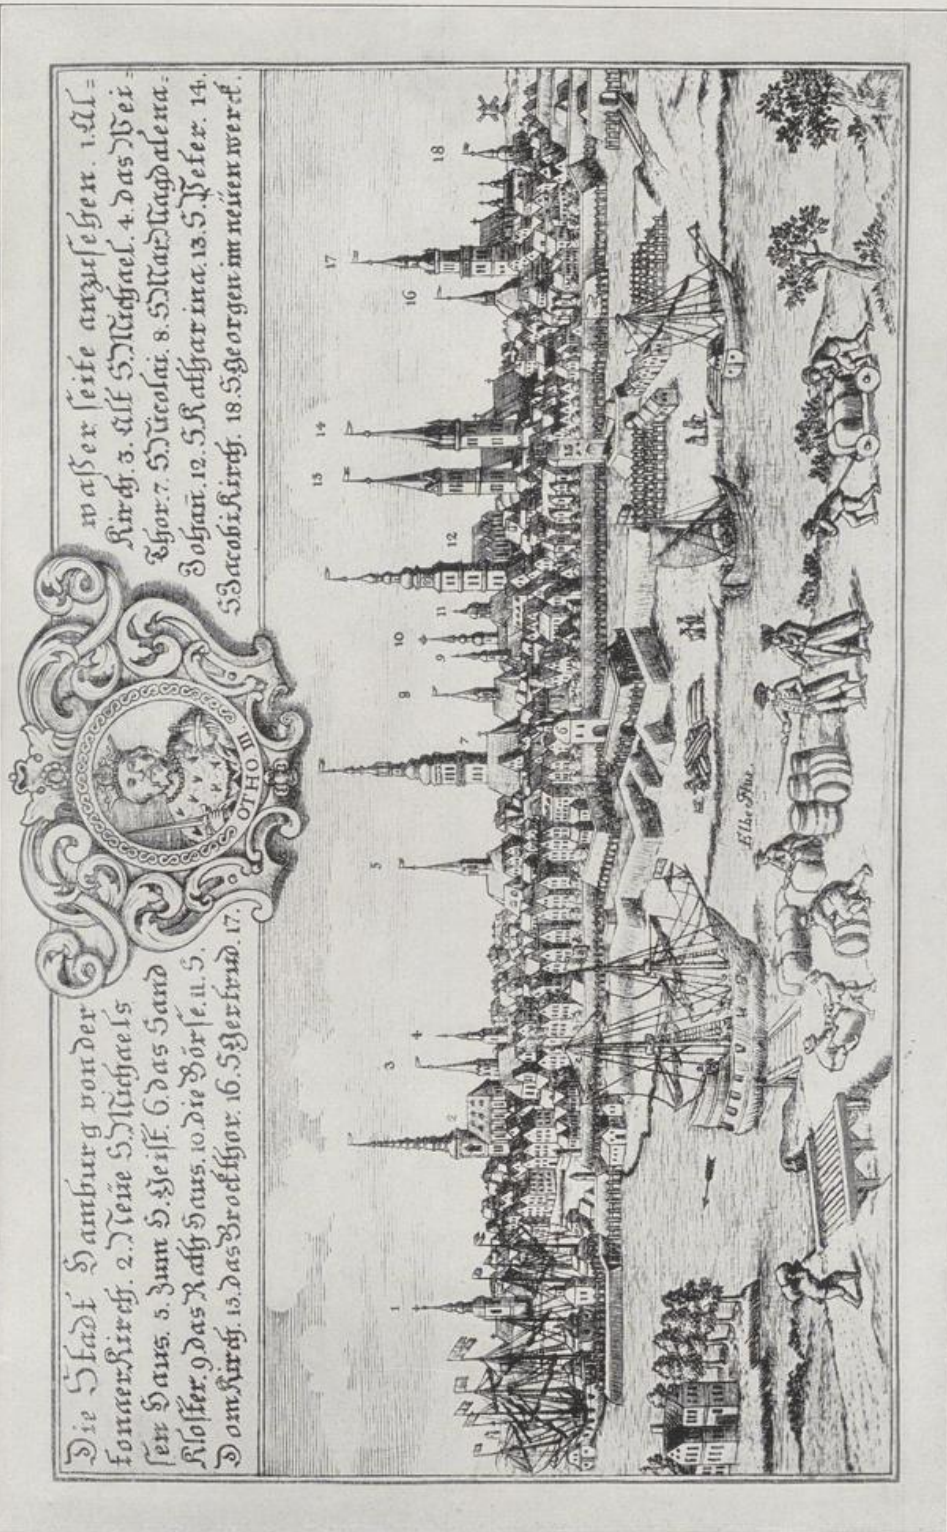 Die Stadt Hamburg von der waßer seite anzusehen. 1. Al=
tonaer Kirch. 2. Neüe S. Michaels Kirch. 3. Alt S. Michael. 4. das Wei=
sen Haus. 5. Zum H. Geist. 6. das Sand Thor. 7. S. Nicolai. 8. S. Mar. Magdalena=
Kloster. 9. das Rath Haus. 10. die Börse. 11. S. Johañ. 12. S. Katharina. 13. S. Peter. 14.
Dom Kirch. 15. das Brockthor. 16. S. Gertrud. 17. S. Jacobi Kirch. 18. S. Georgen im neüen werck.
OTHO III
1
2
3
4
5
6
7
8
9
10
11
12
13
14
15
16
17
18
Elbe Flus.